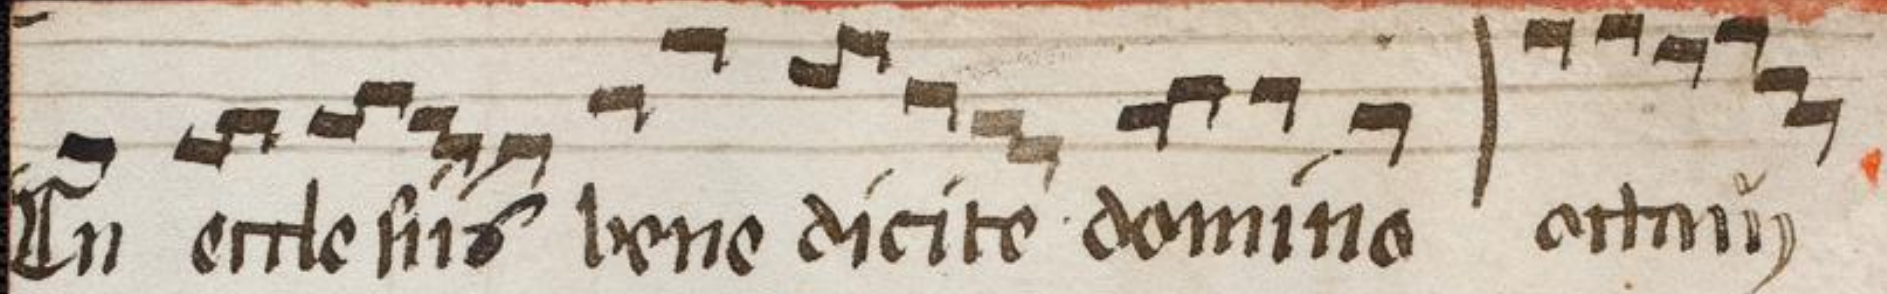 In ecclesiis bene dicite domino octauij